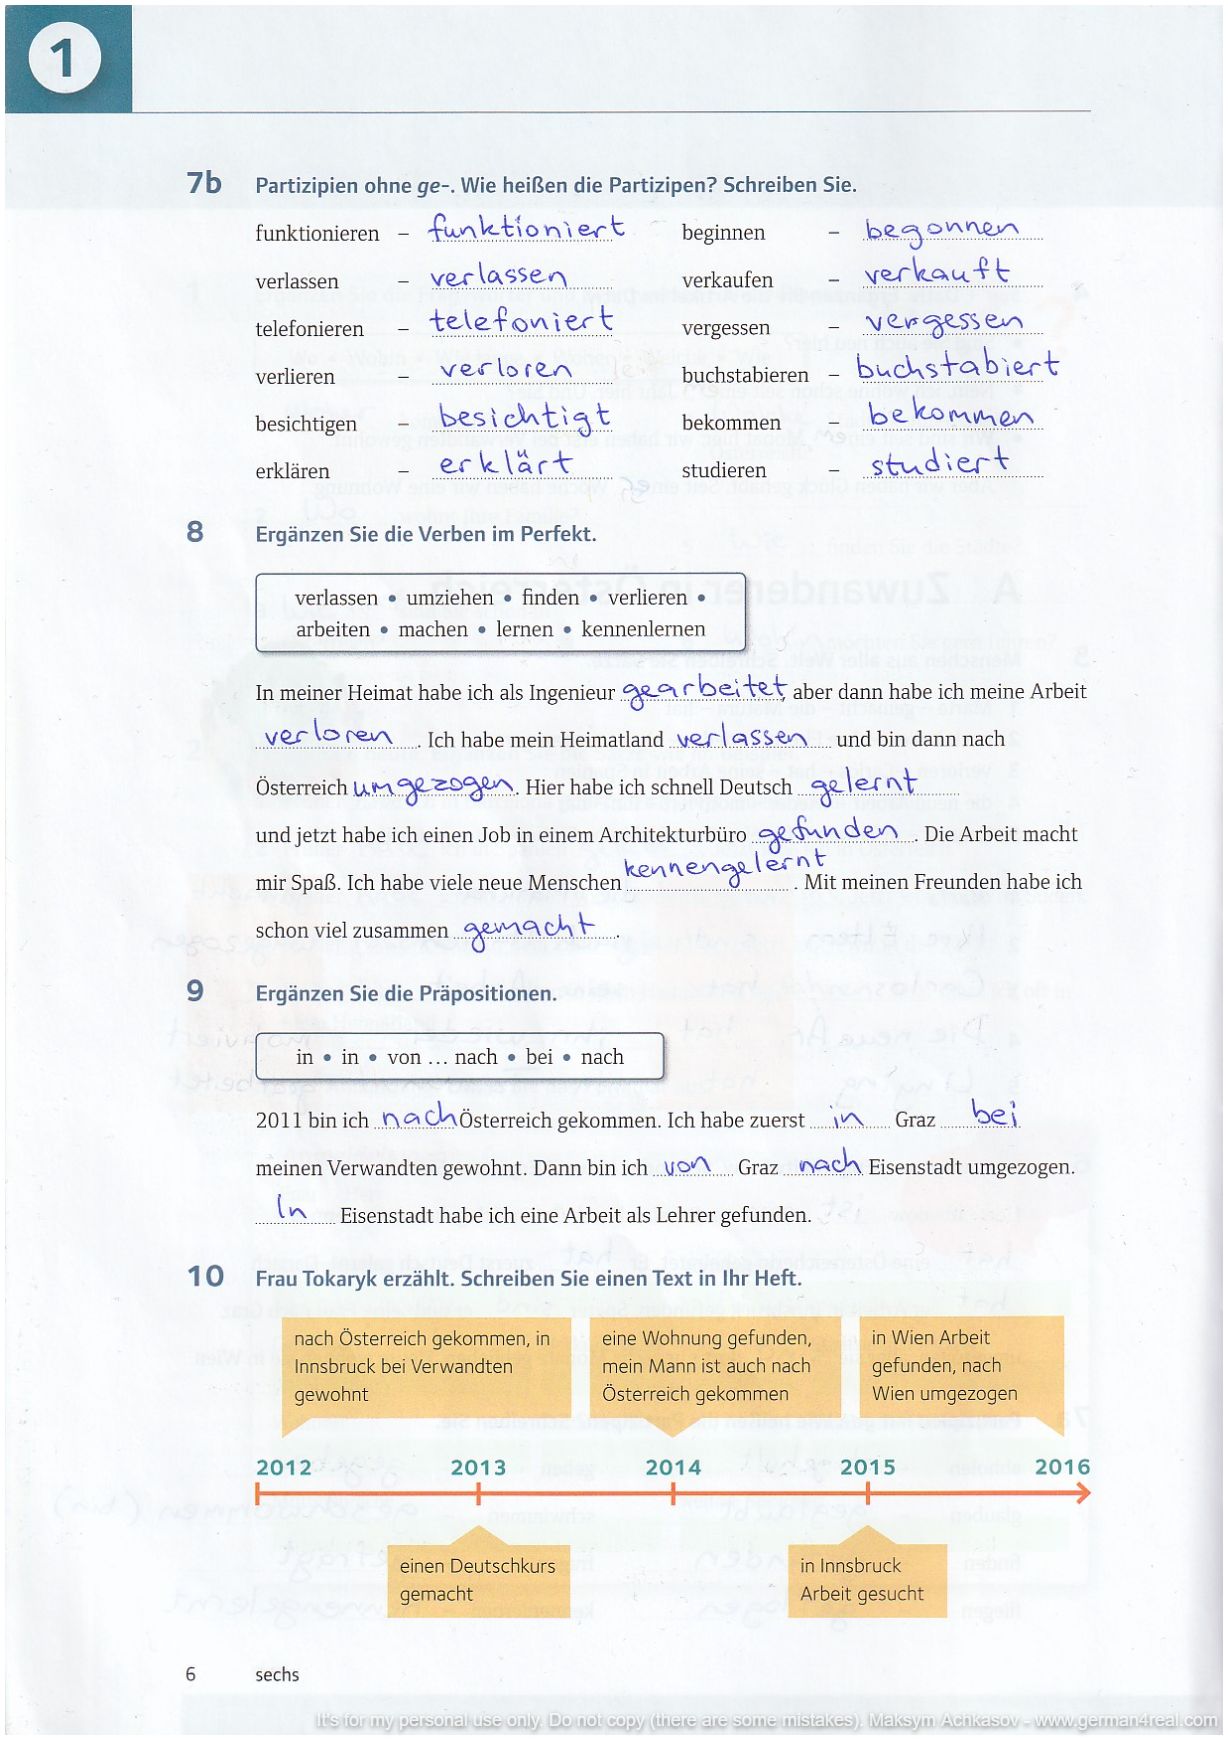 1
7b Partizipien ohne ge-. Wie heißen die Partizipen? Schreiben Sie.
funktionieren – funktioniert beginnen – begonnen
verlassen – verlassen verkaufen – verkauft
telefonieren – telefoniert vergessen – vergessen
verlieren – verloren buchstabieren – buchstabiert
besichtigen – besichtigt bekommen – bekommen
erklären – erklärt studieren – studiert
8 Ergänzen Sie die Verben im Perfekt.
verlassen • umziehen • finden • verlieren •
arbeiten • machen • lernen • kennenlernen
In meiner Heimat habe ich als Ingenieur gearbeitet aber dann habe ich meine Arbeit
verloren. Ich habe mein Heimatland verlassen und bin dann nach
Österreich umgezogen. Hier habe ich schnell Deutsch gelernt
und jetzt habe ich einen Job in einem Architekturbüro gefunden. Die Arbeit macht
mir Spaß. Ich habe viele neue Menschen kennengelernt. Mit meinen Freunden habe ich
schon viel zusammen gemacht.
9 Ergänzen Sie die Präpositionen.
in • in • von ... nach • bei • nach
2011 bin ich nach Österreich gekommen. Ich habe zuerst in Graz bei
meinen Verwandten gewohnt. Dann bin ich von Graz nach Eisenstadt umgezogen.
In Eisenstadt habe ich eine Arbeit als Lehrer gefunden.
10 Frau Tokaryk erzählt. Schreiben Sie einen Text in Ihr Heft.
nach Österreich gekommen, in
Innsbruck bei Verwandten
gewohnt
eine Wohnung gefunden,
mein Mann ist auch nach
Österreich gekommen
in Wien Arbeit
gefunden, nach
Wien umgezogen
2012 2013 2014 2015 2016
einen Deutschkurs
gemacht
in Innsbruck
Arbeit gesucht
6 sechs
It's for my personal use only. Do not copy (there are some mistakes). Maksym Achkasov - www.german4real.com